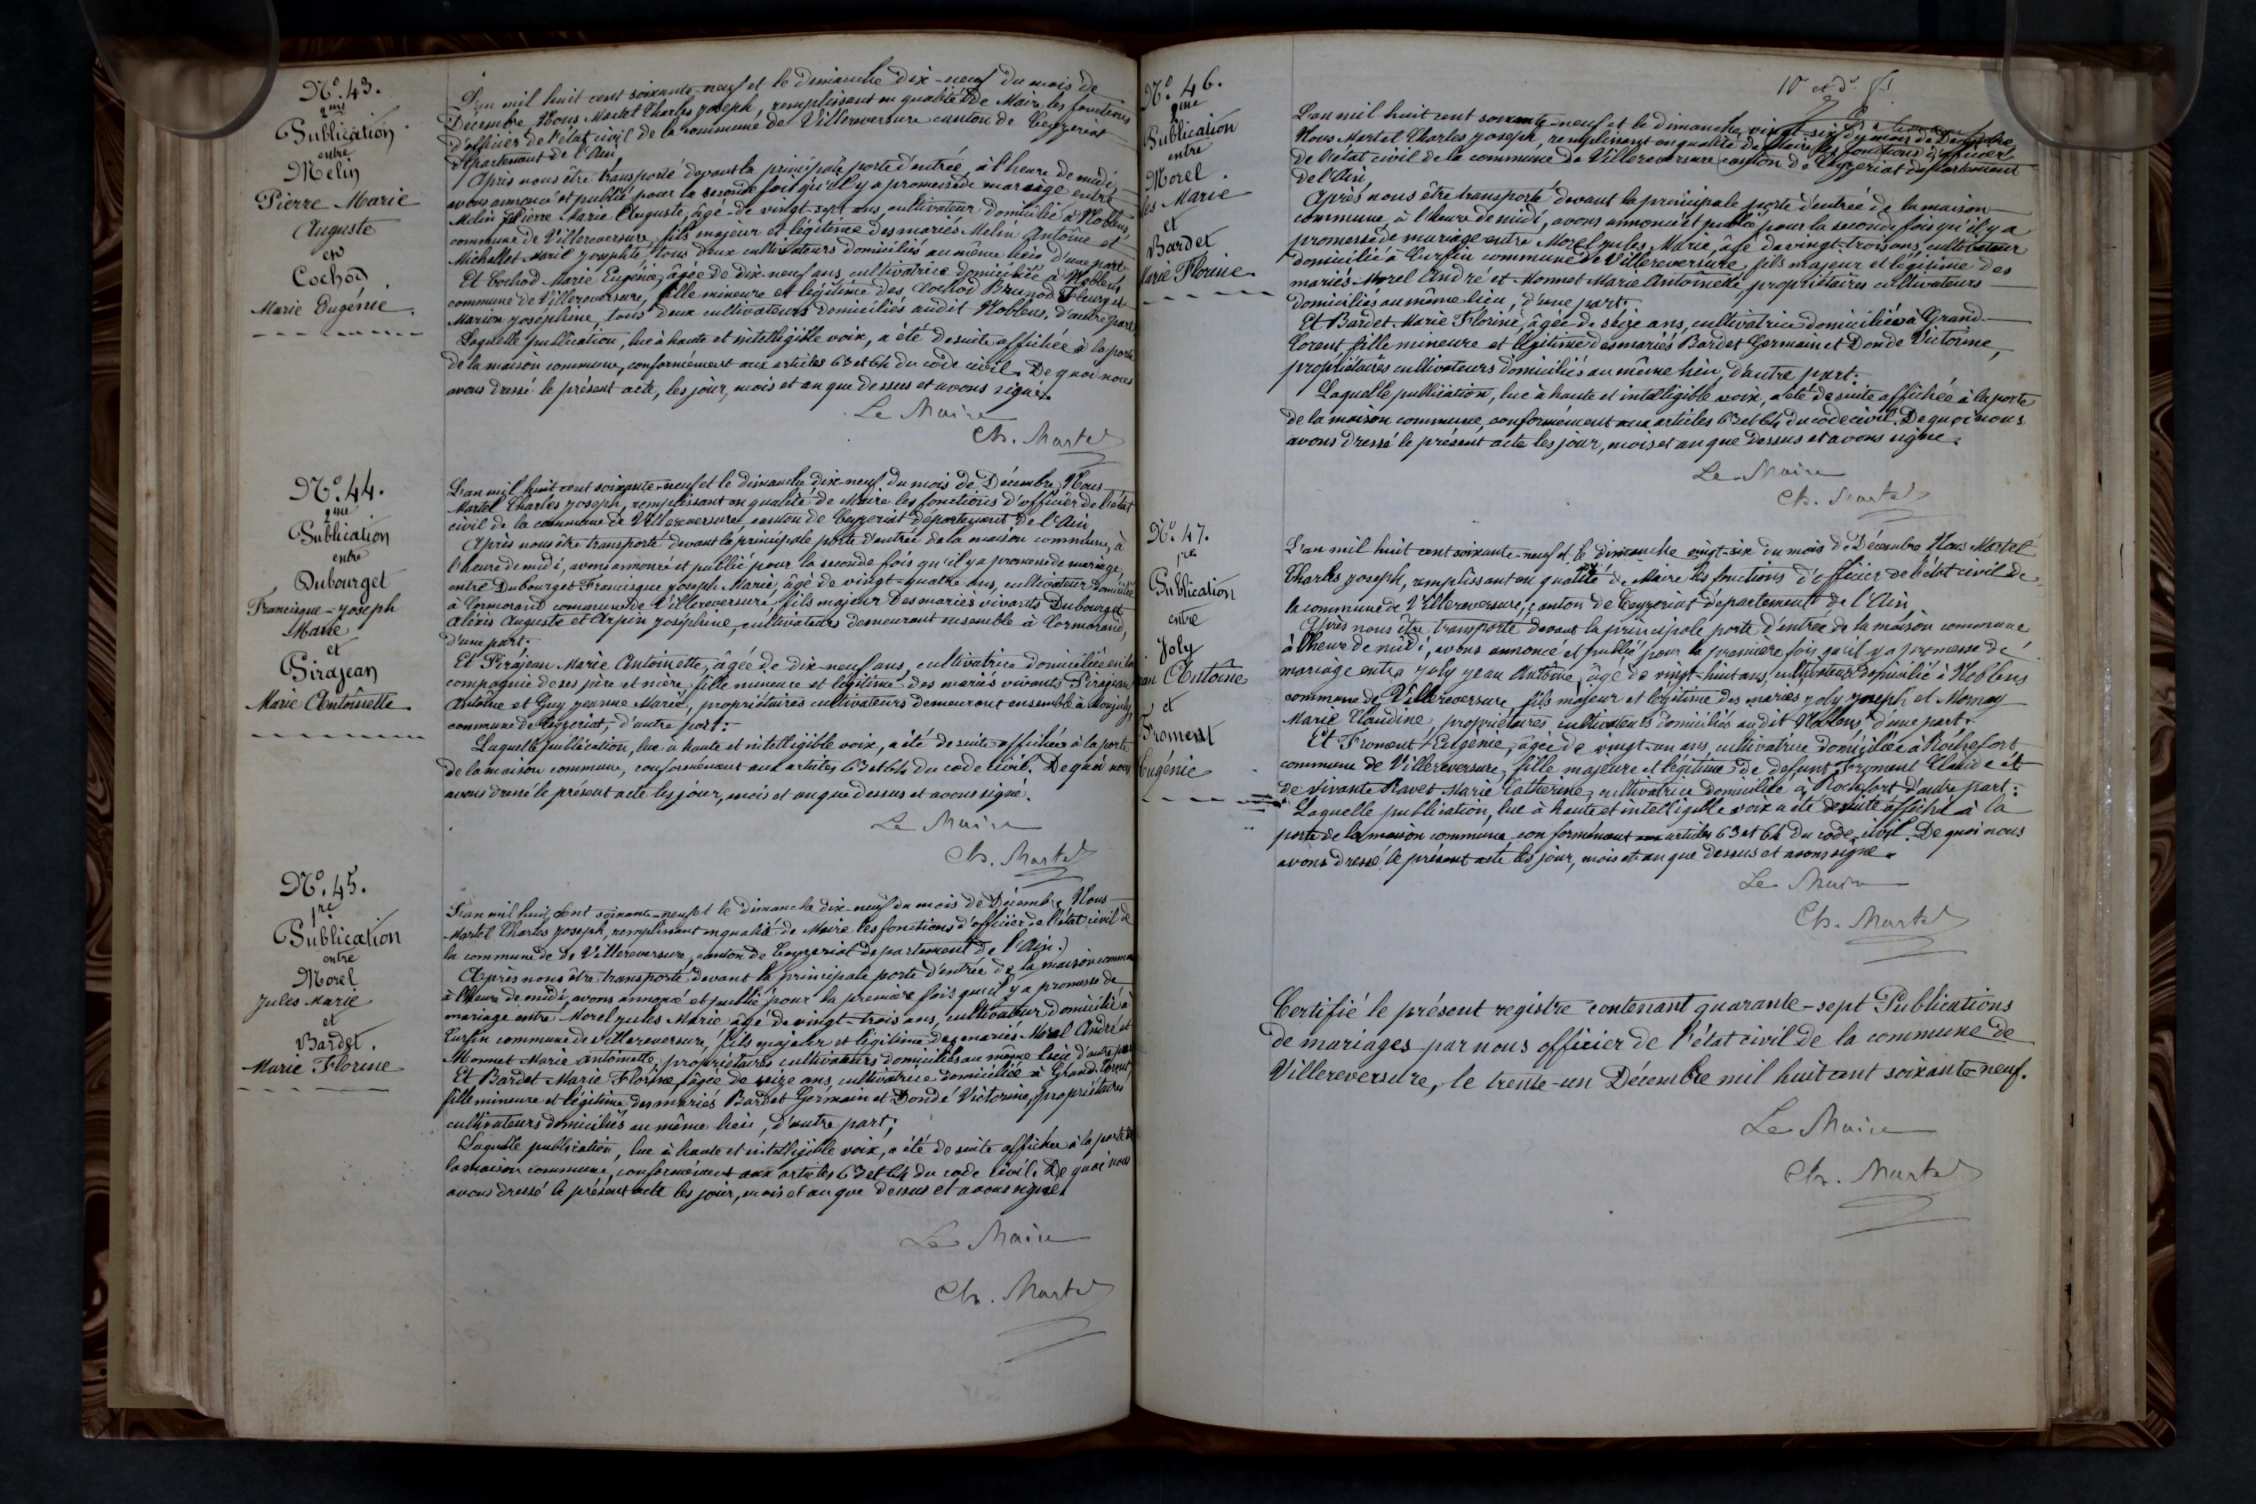 N.º 43.
2me
Publication
entre
Melin
Pierre Marie
Auguste
et
Cochod
Marie Eugénie.
L'an mil huit cent soixante-neuf et le dimanche dix-neuf du mois de
Décembre, Nous Martel Charles Joseph, remplissant en qualité de Maire les fonctions
d'officier de l'état civil de la commune de Villereversure canton de Ceyzeriat
département de l'Ain,
Après nous être transporté devant la principale porte d'entrée, à l'heure de midi,
avons annoncé et publié pour la seconde fois qu'il y a promesse de mariage entre
Melin Pierre Marie Auguste, âgé de vingt-sept ans, cultivateur domicilié à Noblens,
commune de Villereversure, fils majeur et légitime des mariés Melin Antoine et
Michellet Marie Josephte, tous deux cultivateurs domiciliés au même lieu d'une part.
Et Cochod Marie Eugénie, âgée de dix-neuf ans, cultivatrice domiciliée à Noblens,
commune de Villereversure, fille mineure et légitime des Cochod Brunod Fleury et
Marion Joséphine, tous deux cultivateurs domiciliés audit Noblens, d'autre part.
Laquelle publication, lue à haute et intelligible voix, a été de suite affichée à la porte
de la maison commune, conformément aux articles 63 et 64 du code civil. De quoi nous
avons dressé le présent acte, les jour, mois et an que dessus et avons signé.
Le Maire
Ch. Martel
N.º 44.
2me
Publication
entre
Dubourget
Francisque-Joseph
Marie
et
Pirajean
Marie Antoinette
L'an mil huit cent soixante-neuf et le dimanche dix-neuf du mois de Décembre, Nous
Martel Charles Joseph, remplissant en qualité de Maire les fonctions d'officier de l'état
civil de la commune de Villereversure, canton de Ceyzeriat département de l'Ain,
Après nous être transporté devant la principale porte d'entrée de la maison commune, à
l'heure de midi, avons annoncé et publié pour la seconde fois qu'il y a promesse de mariage,
entre Dubourget Francisque Joseph Marie, âgé de vingt-quatre ans, cultivateur domicilié
à Cormorand commune de Villereversure, fils majeur des mariés vivants Dubourget
Alexis Auguste et Arpin Joséphine, cultivateurs demeurant ensemble à Cormorand,
d'une part.
Et Pirajean Marie Antoinette, âgée de dix-neuf ans, cultivatrice domiciliée en la
compagnie de ses père et mère, fille mineure et légitime des mariés vivants Pirajean
Antoine et Guy Jeanne Marie, propriétaires cultivateurs demeurant ensemble à
commune de Ceyzeriat, d'autre part.
Laquelle publication, lue à haute et intelligible voix, a été de suite affichée à la porte
de la maison commune, conformément aux articles 63 et 64 du code civil. De quoi nous
avons dressé le présent acte les jour, mois et an que dessus et avons signé.
Le Maire
Ch. Martel
N.º 45.
1re
Publication
entre
Morel
Jules Marie
et
Bardet.
Marie Florine
L'an mil huit cent soixante-neuf et le dimanche dix-neuf du mois de Décembre, Nous
Martel Charles Joseph, remplissant en qualité de Maire les fonctions d'officier de l'état civil de
la commune de de Villereversure, canton de Ceyzeriat département de l'Ain,
Après nous être transporté devant la principale porte d'entrée de la maison commune
à l'heure de midi, avons annoncé et publié pour la première fois qu'il y a promesse de
mariage entre Morel Jules Marie âgé de vingt-trois ans, cultivateur domicilié à
Turfin commune de Villereversure, fils majeur et légitime des mariés Morel André et
Monnet Marie Antoinette, propriétaires cultivateurs domiciliés au même lieu d'autre part
Et Bardet Marie Florine âgée de seize ans, cultivatrice domiciliée à Grand Corent
fille mineure et légitime des mariés Bardet Germain et Donde Victorine, propriétaires
cultivateurs domiciliés au même lieu, d'autre part;
Laquelle publication, lue à haute et intelligible voix, a été de suite affichée à la porte de
la maison commune, conformément aux articles 63 et 64 du code civil. De quoi nous
avons dressé le présent acte les jour, mois et an que dessus et avons signé.
Le Maire
Ch. Martel
N.º 46.
2me
Publication
entre
Morel.
les Marie
et
Bardet
Marie Florine
L'an mil huit cent soixante-neuf et le dimanche vingt-six du mois de Décembre
Nous Martel Charles Joseph, remplissant en qualité de Maire les fonctions d'officier
de l'état civil de la commune de Villereversure canton de Ceyzeriat département
de l'Ain
Après nous être transporté devant la principale porte d'entrée de la maison
commune, à l'heure de midi, avons annoncé et publié pour la seconde fois qu'il y a
promesse de mariage entre Morel Jules Marie, âgé de vingt-trois ans, cultivateur
domicilié à Turfin commune de Villereversure, fils majeur et légitime des
mariés Morel André et Monnet Marie Antoinette, propriétaires cultivateurs
domiciliés au même lieu, d'une part.
Et Bardet Marie Florine, âgée de seize ans, cultivatrice domiciliée à Grand
Corent fille mineure et légitime des mariés Bardet Germain et Donde Victorine,
propriétaires cultivateurs domiciliés au même lieu, d'autre part.
Laquelle publication, lue à haute et intelligible voix, a été de suite affichée à la porte
de la maison commune, conformément aux articles 63 et 64 du code civil. De quoi nous
avons dressé le présent acte les jour, mois et an que dessus et avons signé.
Le Maire
Ch. Martel
N.º 47.
1re
Publication
entre
Joly
an Antoine
et
Froment
Eugénie
L'an mil huit cent soixante-neuf et le dimanche vingt-six du mois de Décembre Nous Martel
Charles Joseph, remplissant en qualité de Maire les fonctions d'officier de l'état civil de
la commune de Villereversure, canton de Ceyzeriat département de l'Ain,
Après nous être transporté devant la principale porte d'entrée de la maison commune
à l'heure de midi, avons annoncé et publié pour la première fois qu'il y a promesse de
mariage entre Joly Jean Antoine, âgé de vingt-huit ans, cultivateur domicilié à Noblens
commune de Villereversure, fils majeur et légitime des mariés Joly Joseph et Mornay
Marie Claudine, propriétaires cultivateurs domiciliés audit Noblens d'une part.
Et Froment Eugénie, âgée de vingt-un ans, cultivatrice domiciliée à Rochefort
commune de Villereversure, fille majeure et légitime de défunt Froment Claude et
de vivante Ravet Marie Catherine, cultivatrice domiciliée à Rochefort d'autre part:
Laquelle publication, lue à haute et intelligible voix a été de suite affiché à la
porte de la maison commune conformément aux articles 63 et 64 du code civil. De quoi nous
avons dressé le présent acte les jour, mois et an que dessus et avons signé.
Le Maire
Ch. Martel
Certifié le présent registre contenant quarante-sept Publications
de mariages par nous officier de l'état civil de la commune de
Villereversure, le trente-un Décembre mil huit cent soixante neuf.
Le Maire
Ch. Martel